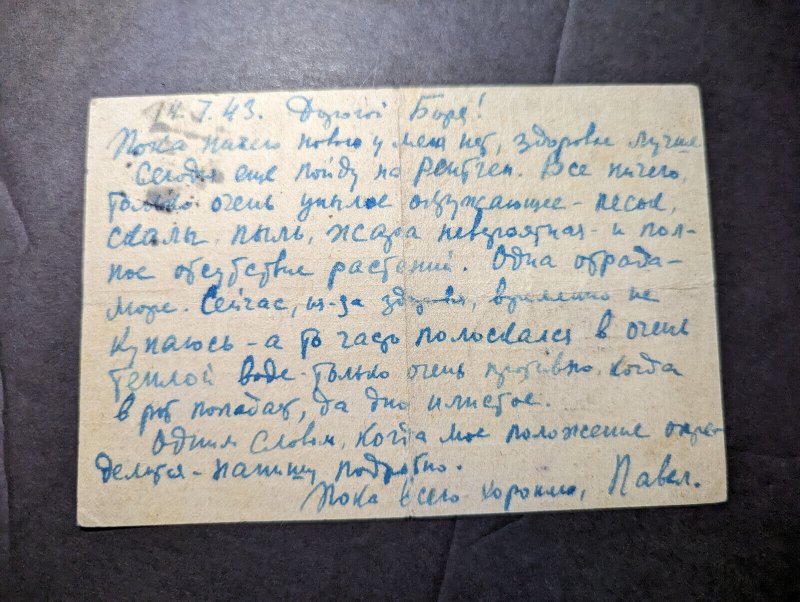 14.7.43. Дорогой Боря!
Пока ничего нового у меня нет, здоровье лучше
Сегодня еще пойду на рентген. Все ничего,
только очень унылое окружающее - песок,
скалы, пыль, жара невероятная - и пол-
ное отсутствие растений. Одна отрада -
море. Сейчас, из-за здоровья, временно не
купаюсь - а то часто полоскался в очень
теплой воде. только очень противно, когда
в рот попадает, да дно илистое.
Одним словом, когда мое положение опре-
делится - напишу подробно.
Пока всего хорошего, Павел.